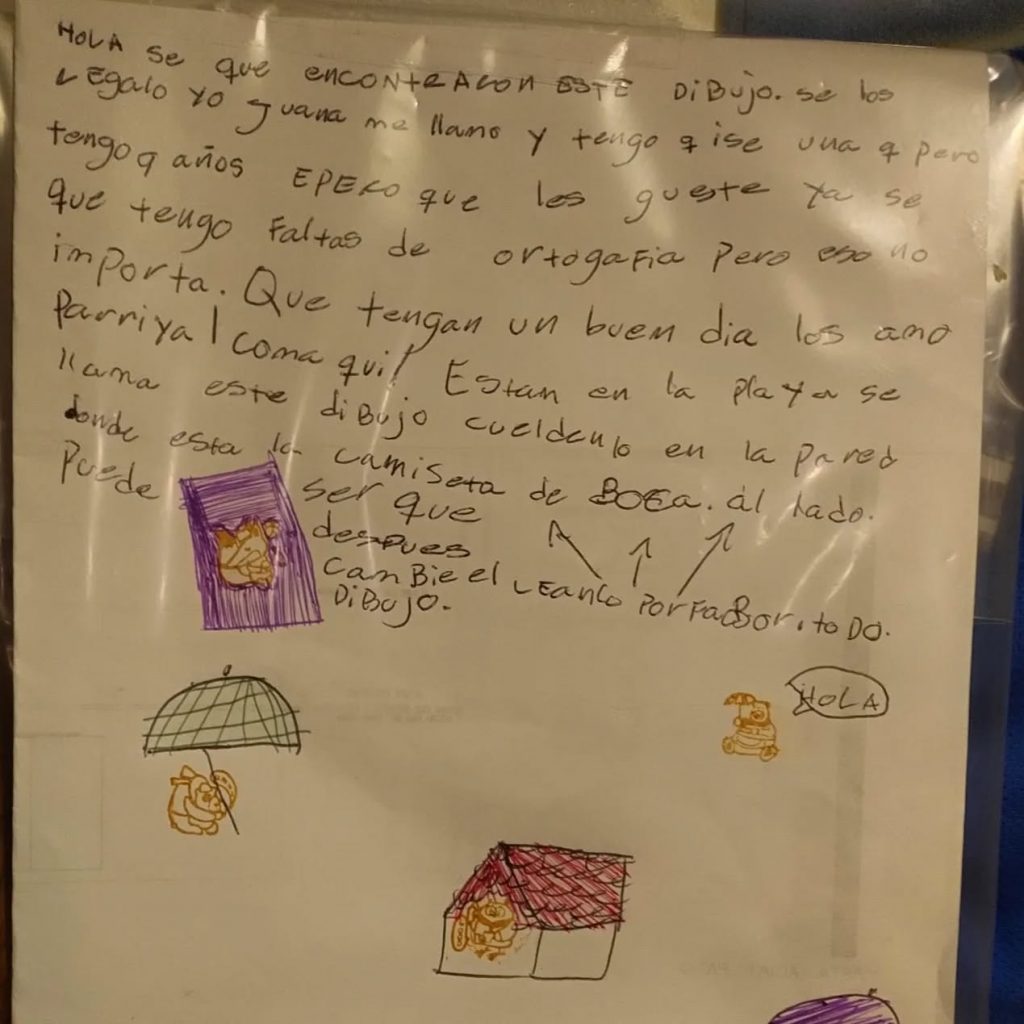 HOLA se que encontraron ESTE DiBujo. se los
regalo yo Juana me llamo y tengo 9 ise una 9 pero
tengo 9 años EPERO que les gueste ya se
que tengo Faltas de ortogafia Pero eso no
importa. Que tengan un buem dia los amo
Parriya | coma qui! Estam en la playa se
llama este diBujo cueldenlo en la pared
donde esta la camiseta de BOCA. al lado.
Puede ser que
despues
camBie el
DiBujo.
LEANLO PORFaBor. toDO.
HOLA